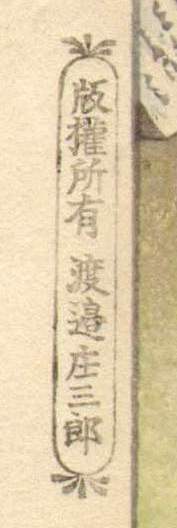 版權所有 渡邉庄三郎